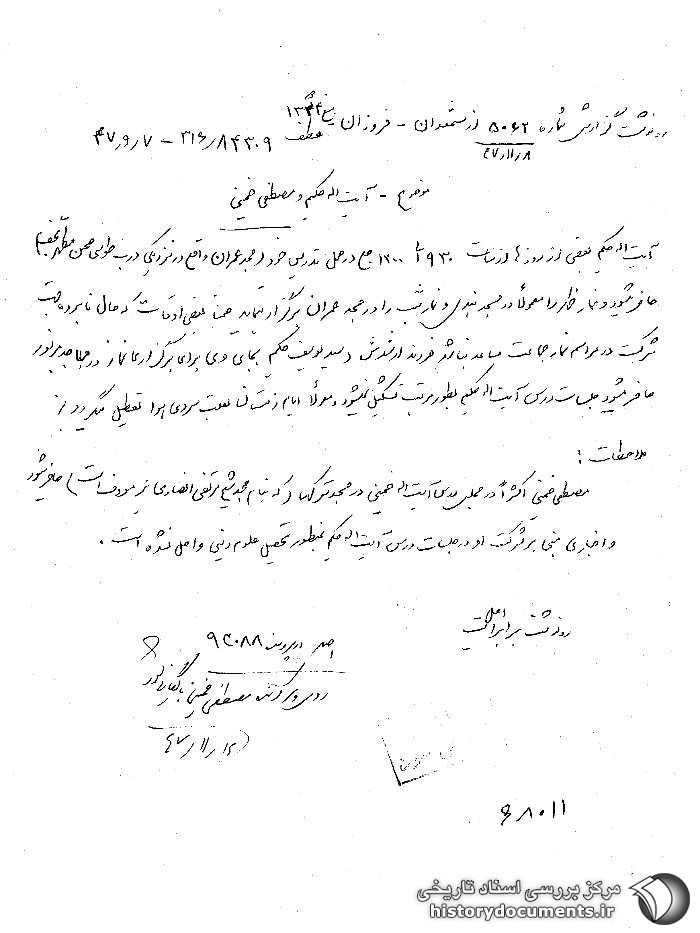 رونوشت گزارش شماره ۵۰۶۲ از شمعدان - فروزان
۴۷/۱۱/۸
عطف ۳۱۶/۸۴۳۰۹ - ۴۷/۹/۷
موضوع - آیت اله حکیم و مصطفی خمینی
آیت اله حکیم بعضی از روزها از ساعت ۹۳۰ تا ۱۰۰۰ صبح در محل تدریس خود (مسجد عمران واقع در نزدیکی درب طوسی صحن مطهر نجف)
حاضر میشود و نماز ظهر را معمولاً در مسجد هندی و نماز شب را در مسجد عمران برگزار مینماید ضمناً بعضی اوقات که حال نامبرده جهت
شرکت در مراسم نماز جماعت مساعد نباشد فرزند ارشدش سید یوسف حکیم بجای وی برای برگزاری نماز در مساجد مزبور
حاضر میشود جلسات درس آیت اله حکیم بطور مرتب تشکیل نمیشود و معمولاً ایام زمستان بعلت سردی هوا تعطیل میگردد
ملاحظات :
مصطفی خمینی اکثراً در مجلس درس آیت اله خمینی در مسجد ترکها (که بنام مسجد شیخ مرتضی انصاری نیز معروف است) حاضر میشود
و اخباری مبنی بر شرکت او در جلسات درس آیت اله حکیم بمنظور تحصیل علوم دینی واصل نشده است .
رونوشت برابر اصل است
اصل در پرونده ۹۳۰۸۸
مصطفی خمینی بایگانی شود
۴۷/۱۱/۱۶
۶۸۰۱۱
مرکز بررسی اسناد تاریخی
historydocuments.ir